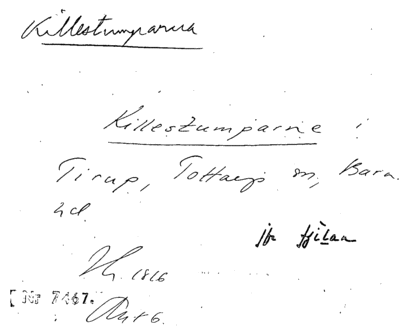 Killestumparna
Killestumparne i
Tirup, Tottarp sn, Bara
hd.
jfr
1816
[Nr 7467.